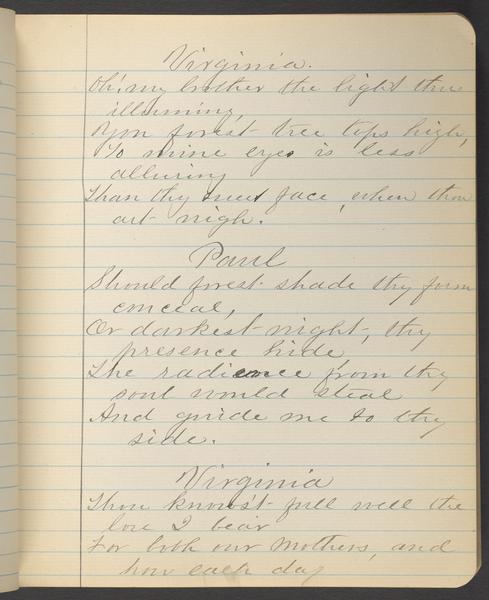 Virginia.
Oh! my brother the light thus
illumining,
Yon forest tree tops high,
To mine eyes is less
alluring
Than thy sweet face, when thou
art nigh.
Paul
Should forest shade thy form
conceal,
Or darkest night, thy
presence hide,
The radience from thy
soul would steal
And guide me to thy
side.
Virginia
Thou know'st full well the
love I bear
For both our Mothers, and
how each day